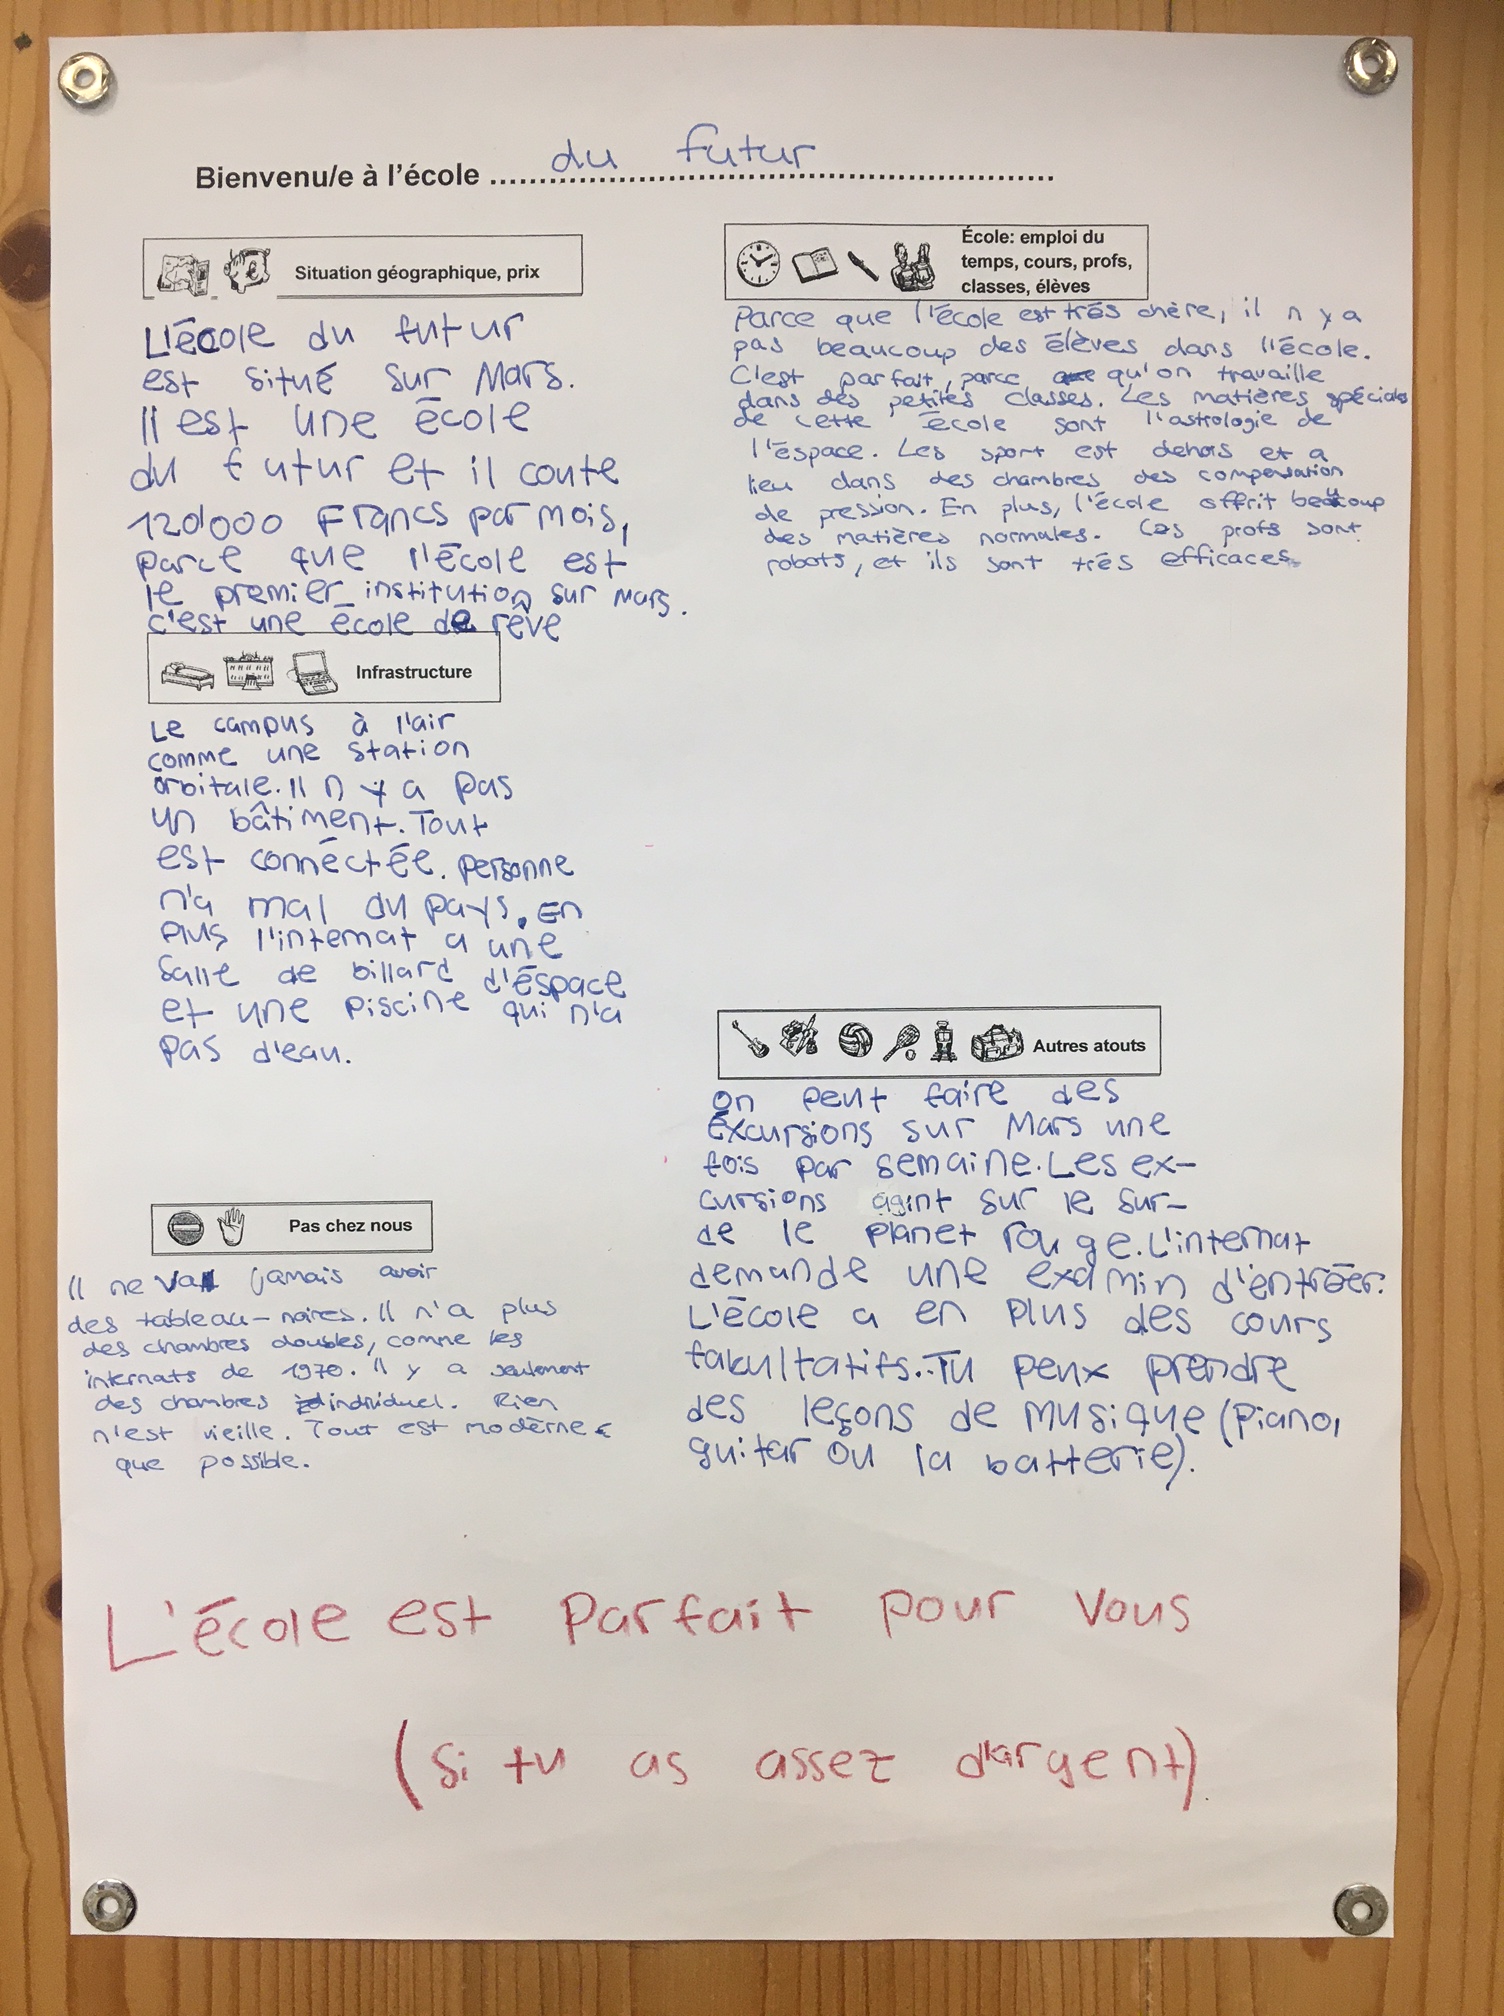 Bienvenu/e à l'école du futur
Situation géographique, prix
L'école du futur
est situé sur Mars.
Il est une école
du futur et il coute
120'000 Francs par mois,
parce que l'école est
le premier institution sur Mars.
c'est une école de rêve
Infrastructure
Le campus à l'air
comme une station
orbitale. Il n y a pas
un bâtiment. Tout
est connéctée. Personne
n'a mal du pays. En
plus l'internat a une
salle de billard d'éspace
et une piscine qui n'a
pas d'eau.
Pas chez nous
Il ne va jamais avoir
des tableau-noires. Il n'a plus
des chambres doubles, comme les
internats de 1970. Il y a seulement
des chambres individuel. Rien
n'est vieille. Tout est moderne
que possible.
École: emploi du
temps, cours, profs,
classes, élèves
Parce que l'école est trés chère, il n y a
pas beaucoup des élèves dans l'école.
C'est parfait, parce qu'on travaille
dans des petites classes. Les matières spéciales
de cette école sont l'astrologie de
l'éspace. Les sport est dehors et a
lieu dans des chambres des compensation
de pression. En plus, l'école offrit beaucoup
des matières normales. Les profs sont
robots, et ils sont trés efficaces.
Autres atouts
On peut faire des
éxcursions sur Mars une
fois par semaine. Les ex-
cursions agint sur le sur-
de le planet rouge. L'internat
demande une examin d'entrèer.
L'école a en plus des cours
fakultatifs. Tu peux prendre
des leçons de musique (piano,
guitar ou la batterie).
L'école est parfait pour vous
(si tu as assez d'argent)